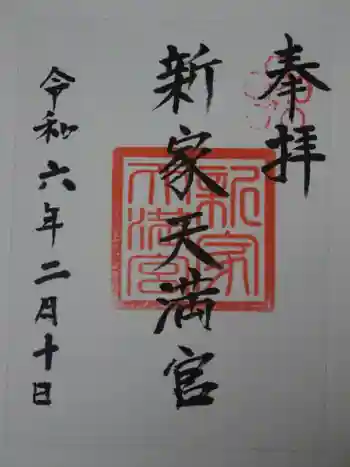 奉拝
新家天満宮
新家天満宮
令和六年二月十日